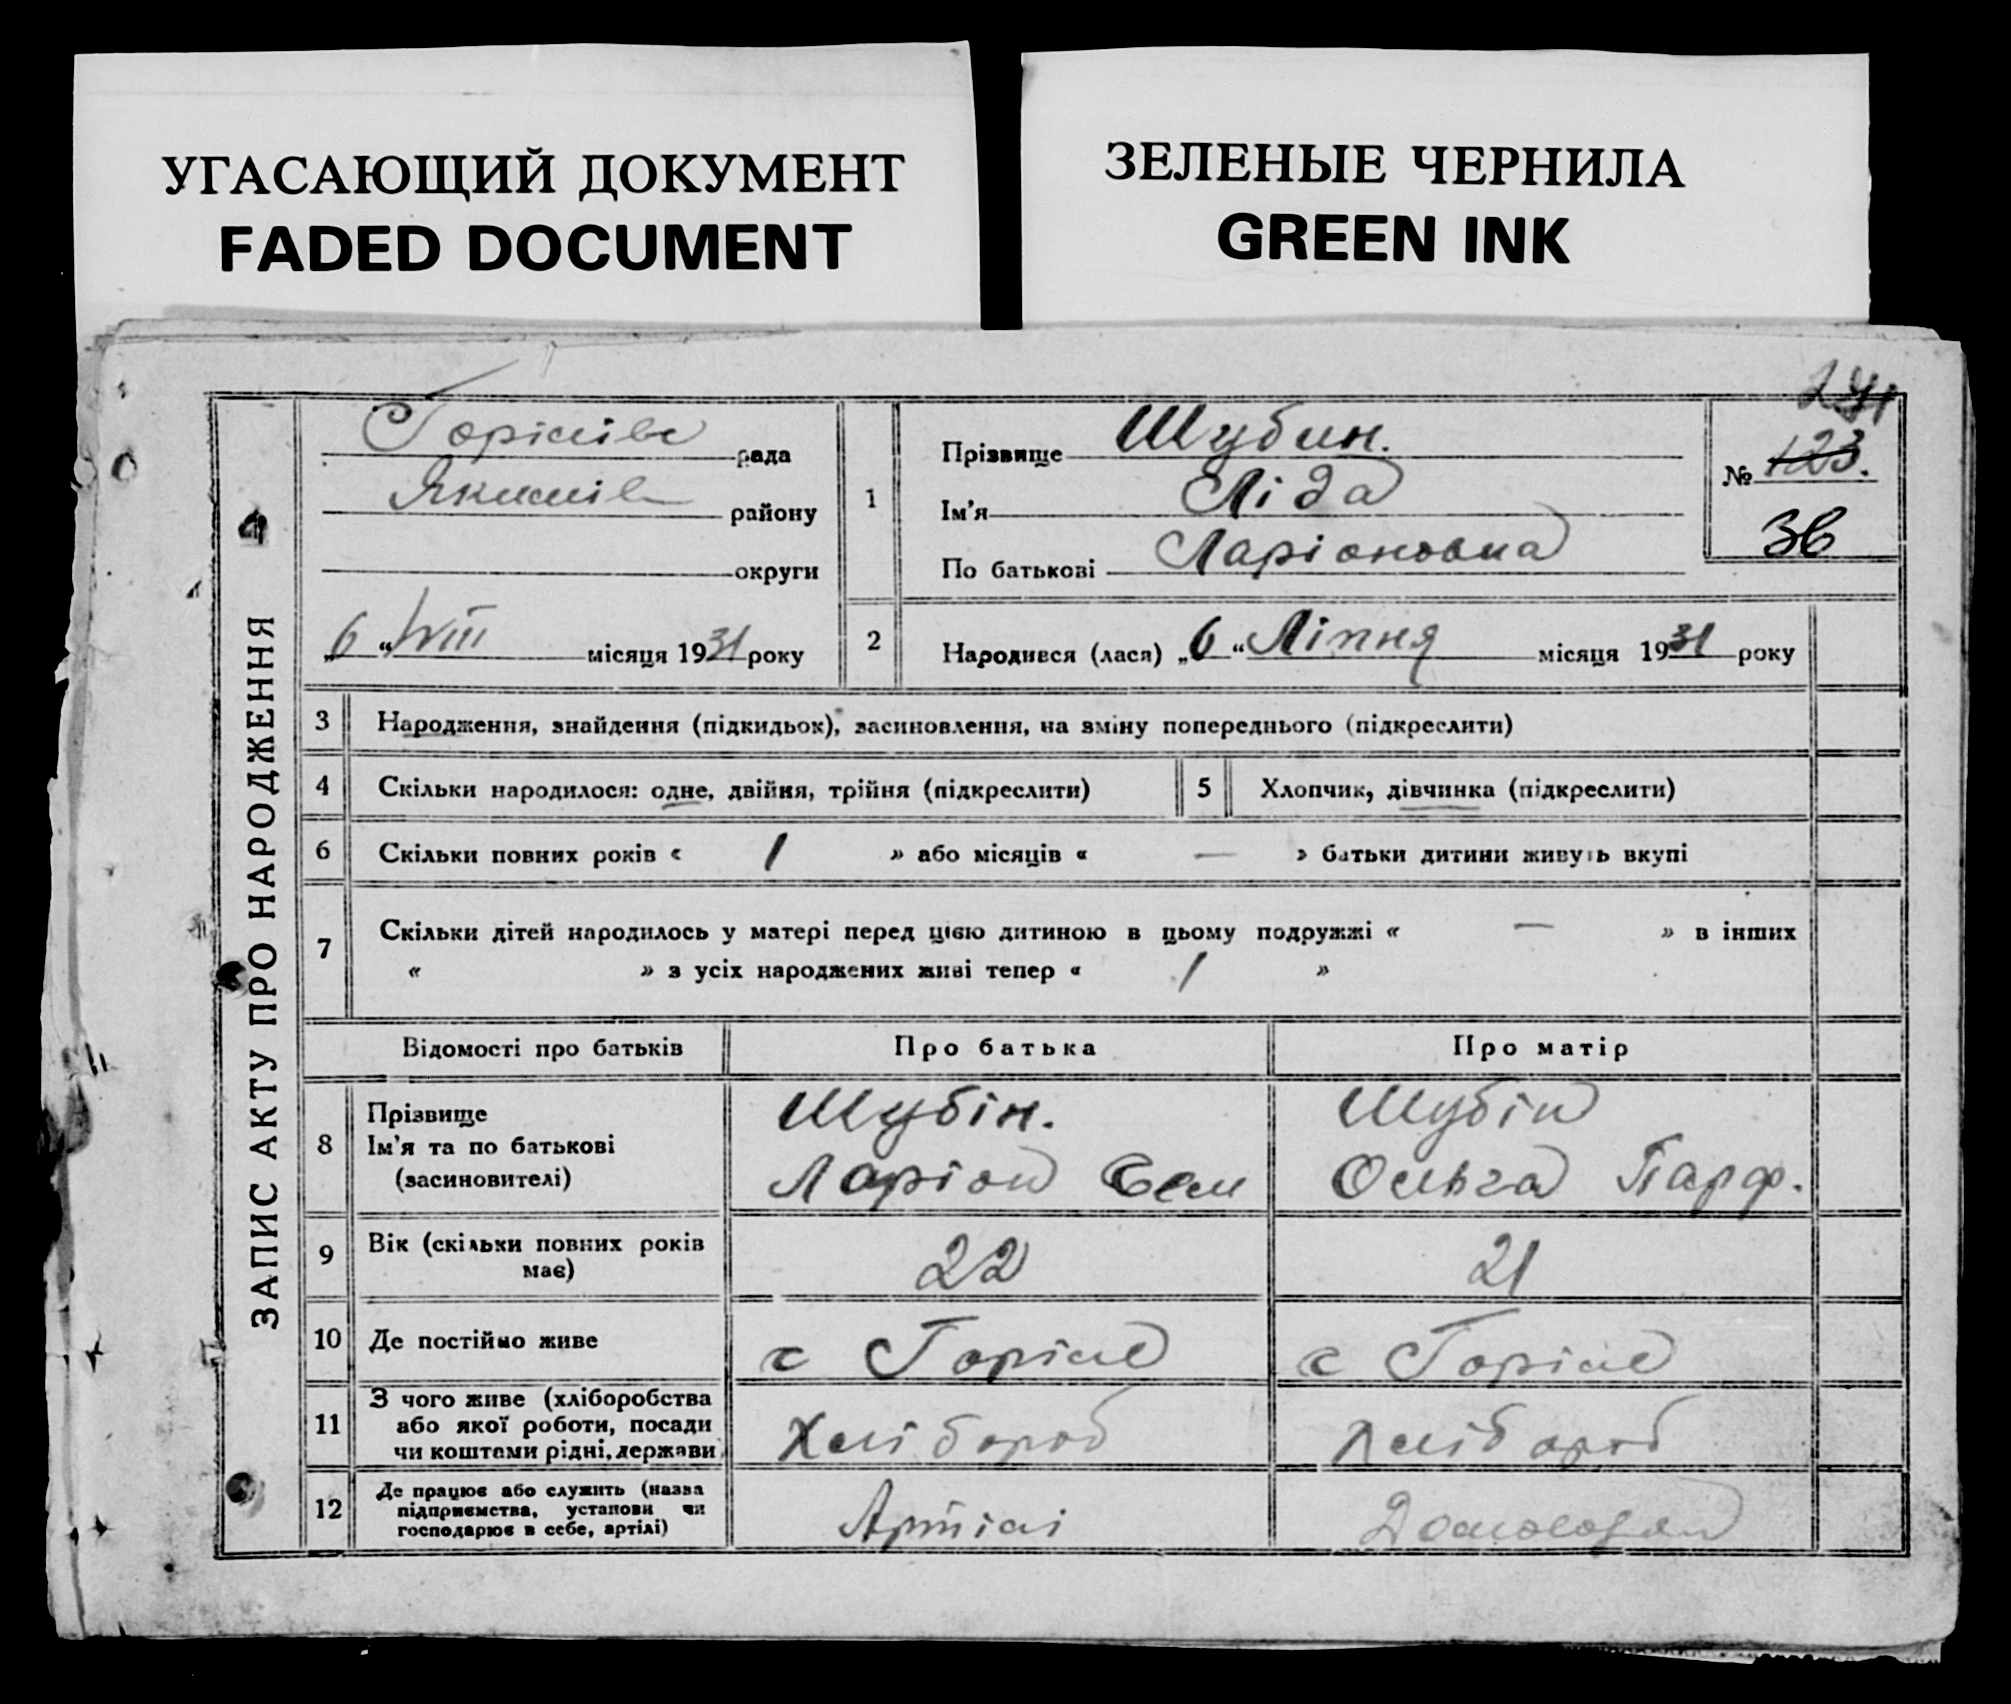 УГАСАЮЩИЙ ДОКУМЕНТ
FADED DOCUMENT
ЗЕЛЕНЫЕ ЧЕРНИЛА
GREEN INK
ЗАПИС АКТУ ПРО НАРОДЖЕННЯ
Горілів рада
Якимів району
округи
„6“ VIII місяця 1931 року
1
Прізвище Шубин.
Ім'я Ліда
По батькові Ларіоновна
№ 123.
36
2
Народився (лася) „6“ Ліпня місяця 1931 року
3 Народження, знайдення (підкидьок), засиновлення, на зміну попереднього (підкреслити)
4 Скільки народилося: одне, двійня, трійня (підкреслити) 5 Хлопчик, дівчинка (підкреслити)
6 Скільки повних років « 1 » або місяців « — » батьки дитини живуть вкупі
7 Скільки дітей народилось у матері перед цією дитиною в цьому подружжі « — » в інших
« » з усіх народжених живі тепер « 1 »
Відомості про батьків Про батька Про матір
8 Прізвище
Ім'я та по батькові
(засиновителі)
Шубін.
Ларіон Сем
Шубін
Ольга Парф.
9 Вік (скільки повних років
має)
22 21
10 Де постійно живе с Горіле с Горіле
11 З чого живе (хліборобства
або якої роботи, посади
чи коштами рідні, держави
Хлібороб Хлібороб
12 Де працює або служить (назва
підприємства, установи чи
господарює в себе, артілі)
Артілі